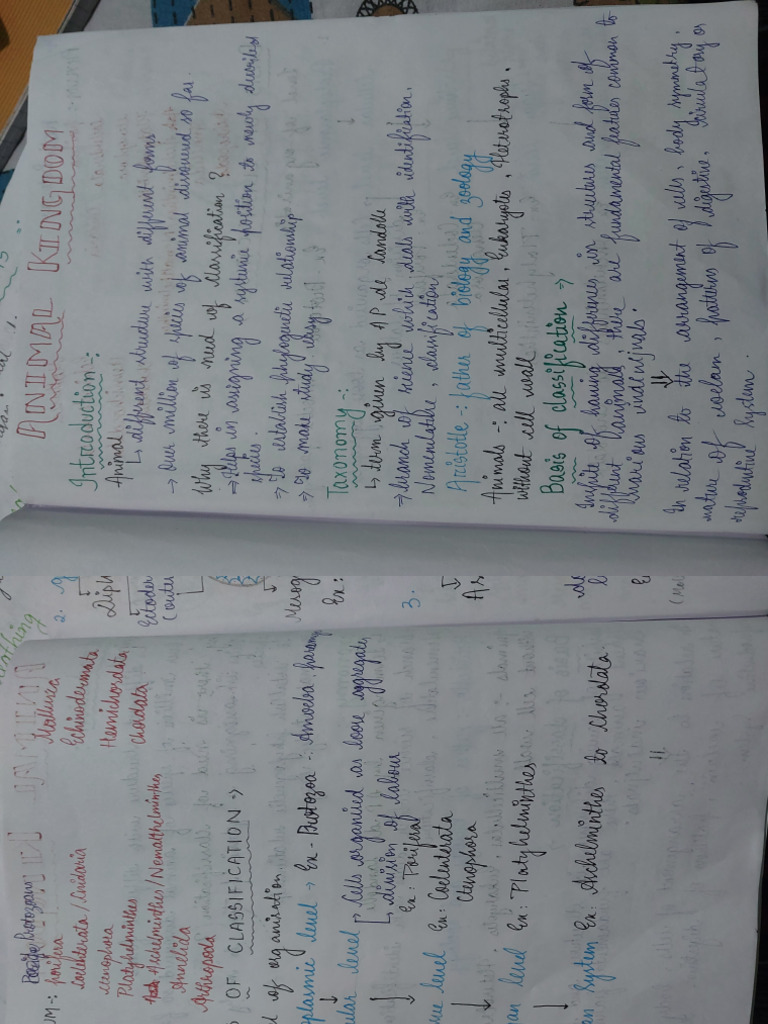 ANIMAL KINGDOM
Introduction -:
Animal
↳ different structure with different forms
→ Over million of species of animal discovered so far.
Why there is need of classification?
⇒ Helps in assigning a systemic position to newly
species.
⇒ To establish phylogenetic relationship
⇒ To make study easy
Taxonomy -:
↳ term given by AP. de Candolle
⇒ branch of science which deals with identification,
Nomenclature, classification
Aristotle -: father of biology and zoology
Animals -: all multicellular, Eukaryotes, Heterotrophs,
without cell wall
Basis of classification ⇒
Inspite of having differences in structure and form of
different animals, there are fundamental features common to
various individuals.
⇓
In relation to the arrangement of cells, body symmetry,
nature of coelom, patterns of digestive, circulatory or
reproductive system.
UM -: porifera
Coelenterata / Cnidaria
Ctenophora
Platyhelminthes
Aschelminthes / Nemathelminthes
Annelida
Arthropoda
Mollusca
Echinodermata
Hemichordata
Chordata
OF CLASSIFICATION ⇒
of organisation
plasmic level → Ex - Protozoa -: Amoeba,
ular level → Cells organised as loose aggregates
↳ division of labour
Ex: Poriferal
level Ex: Coelenterata
Ctenophora
an level Ex: Platyhelminthes
an System Ex: Aschelminthes to Chordata.
2.
Dipl
Ectoder
(outer
Mesog
Ex:
3.
As
de